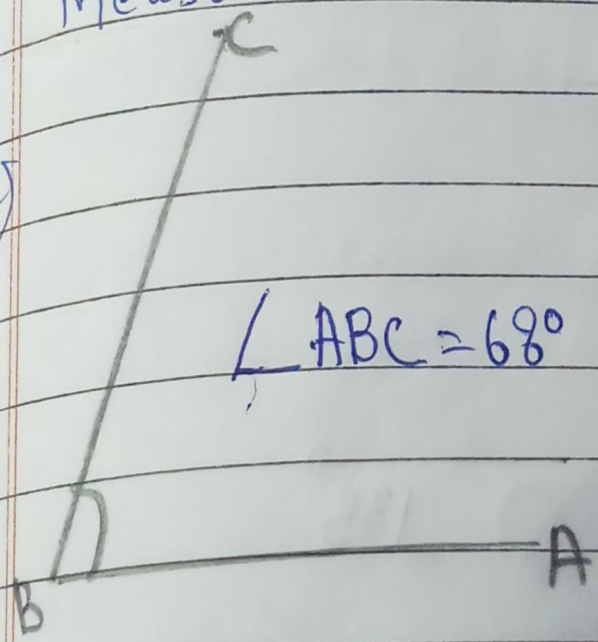 C
∠ABC = 68°
B
A